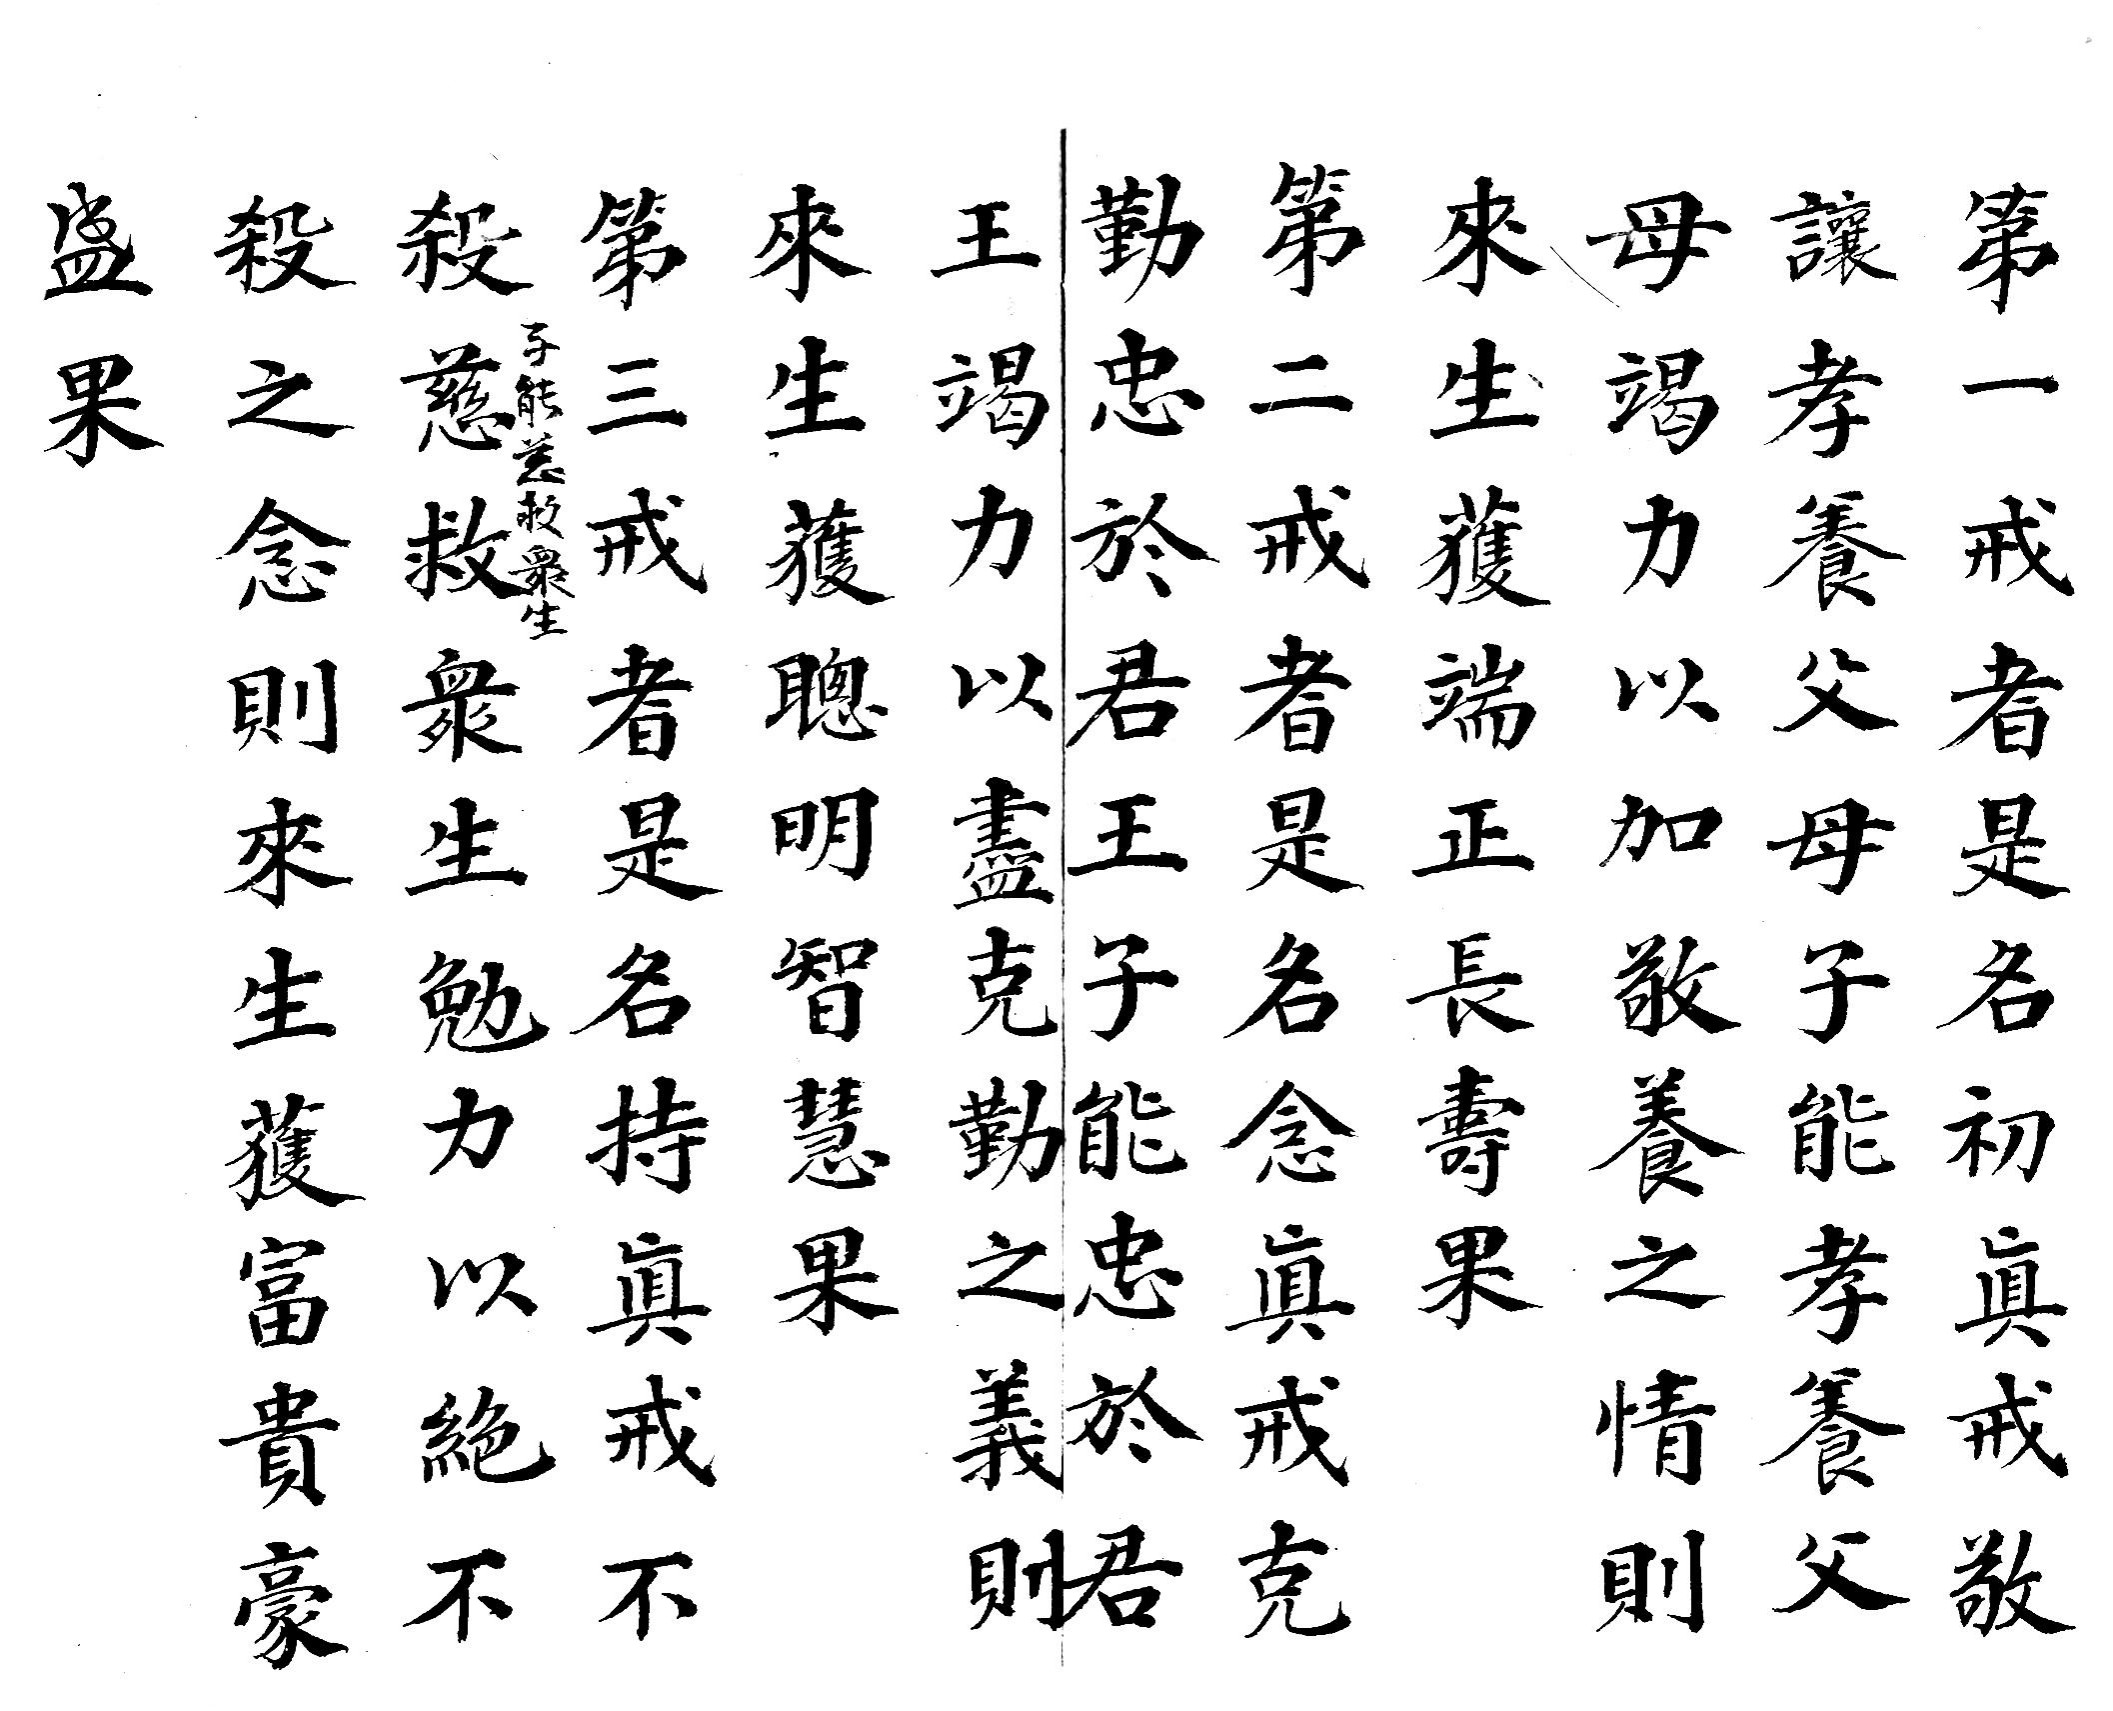 第一戒者是名初眞戒敬
讓孝養父母子能孝養父
母竭力以加敬養之情則
來生獲端正長壽果
第二戒者是名念眞戒克
勤忠於君王子能忠於君
王竭力以盡克勤之義則
來生獲聰明智慧果
第三戒者是名持眞戒不
子能慈救衆生
殺慈救衆生勉力以絕不
殺之念則來生獲富貴豪
盛果